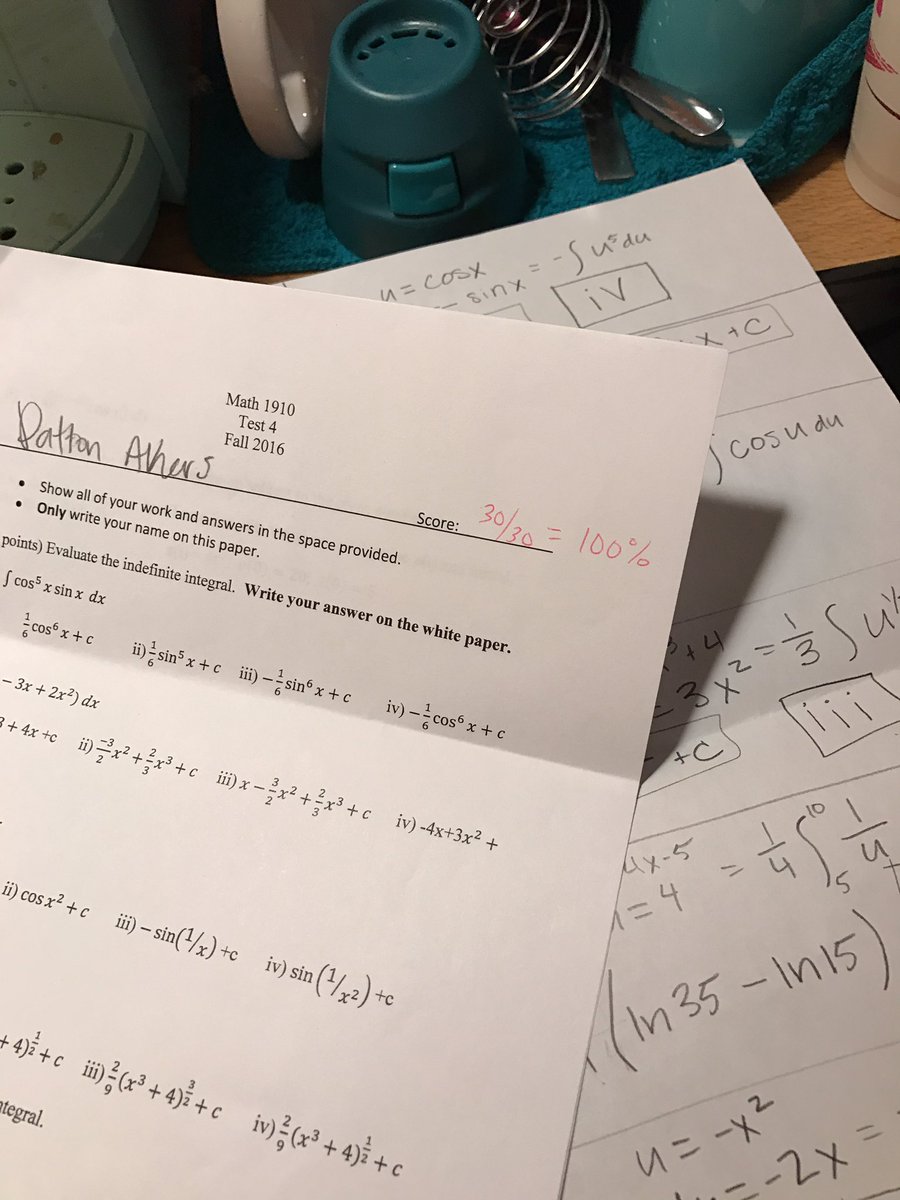 Math 1910
Test 4
Fall 2016
Dalton Akers
Score: 30/30 = 100%
• Show all of your work and answers in the space provided.
• Only write your name on this paper.
points) Evaluate the indefinite integral. Write your answer on the white paper.
∫ cos⁵ x sin x dx
1/6 cos⁶ x + c ii) 1/6 sin⁵ x + c iii) − 1/6 sin⁶ x + c iv) − 1/6 cos⁶ x + c
− 3x + 2x²) dx
3 + 4x +c ii) −3/2 x² + 2/3 x³ + c iii) x − 3/2 x² + 2/3 x³ + c iv) -4x+3x² +
ii) cos x² + c iii) − sin(1/x) +c iv) sin (1/x²) +c
+ 4)^1/2 + c iii) 2/9 (x³ + 4)^3/2 + c iv) 2/9 (x³ + 4)^1/2 + c
tegral.
u = cosx
- sinx = -∫ u⁵ du
iv
x + C
∫ cos u du
³ + 4
= 3x² = 1/3 ∫ u
+c
iii
4x-5
= 4 = 1/4 ∫₅¹⁰ 1/u
(ln 35 - ln 15)
u = -x²
= -2x =